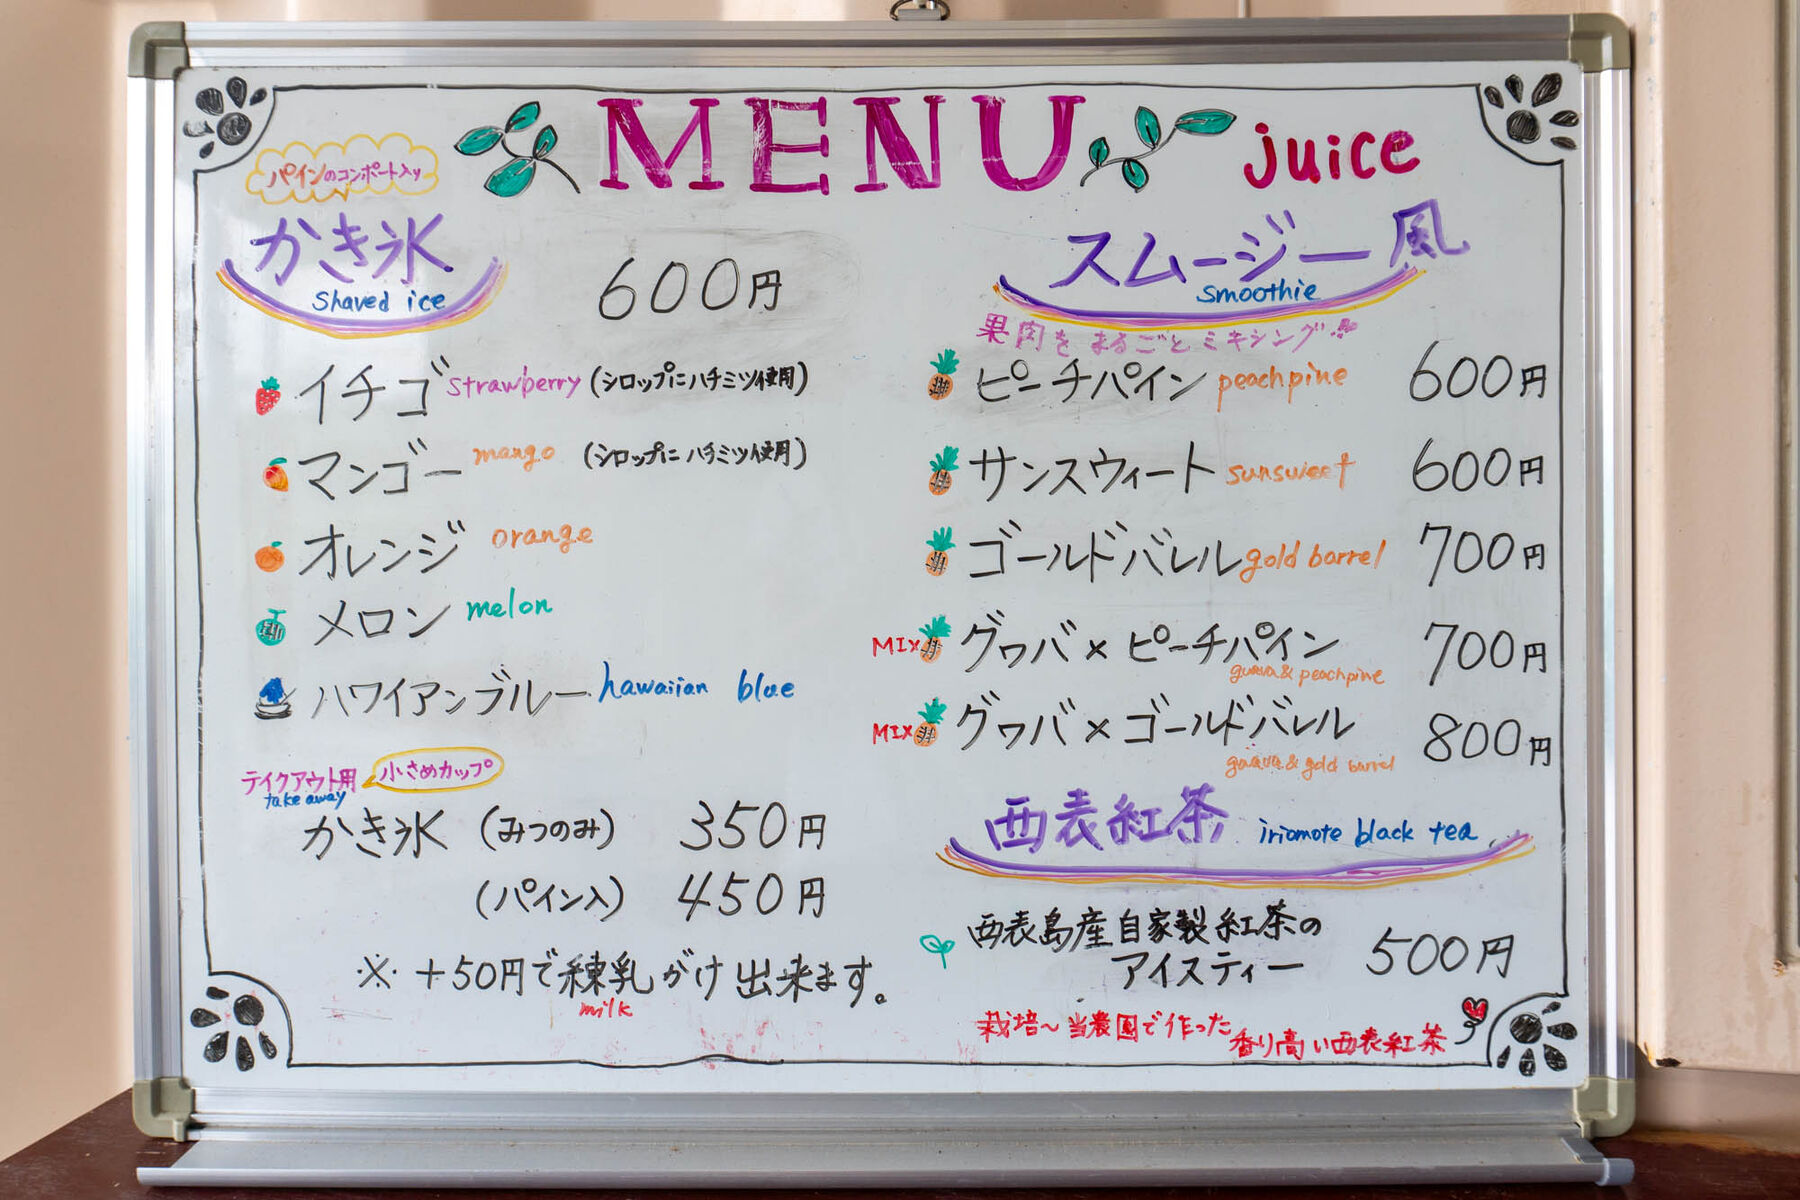 MENU
juice
パインのコンポート入り
かき氷
shaved ice
600円
イチゴ strawberry (シロップにハチミツ使用)
マンゴー mango (シロップにハチミツ使用)
オレンジ orange
メロン melon
ハワイアンブルー hawaiian blue
テイクアウト用 小さめカップ
take away
かき氷 (みつのみ) 350円
(パイン入) 450円
※ +50円で練乳がけ出来ます。
milk
スムージー風
smoothie
果肉をまるごとミキシング!!
ピーチパイン peachpine 600円
サンスウィート sunsweet 600円
ゴールドバレル gold barrel 700円
MIX グヮバ×ピーチパイン 700円
guava & peachpine
MIX グヮバ×ゴールドバレル 800円
guava & gold barrel
西表紅茶 iriomote black tea
西表島産自家製紅茶の
アイスティー 500円
栽培〜当農園で作った
香り高い西表紅茶